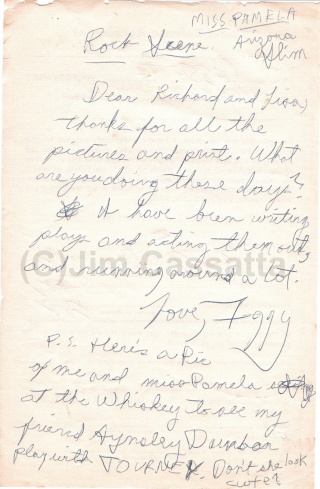 MISS PAMELA
Rock Scene
Arizona
Slim
Dear Richard and Lisa,
thanks for all the
pictures and print. What
are you doing these days?
I have been writing
plays and acting them out,
and running around a lot.
(C)Jim Cassatta
Love, Iggy
P.S. Here's a Pic
of me and miss Pamela
at the Whiskey to see my
friend Aynsley Dunbar
play with JOURNEY. Don't she look
cute?